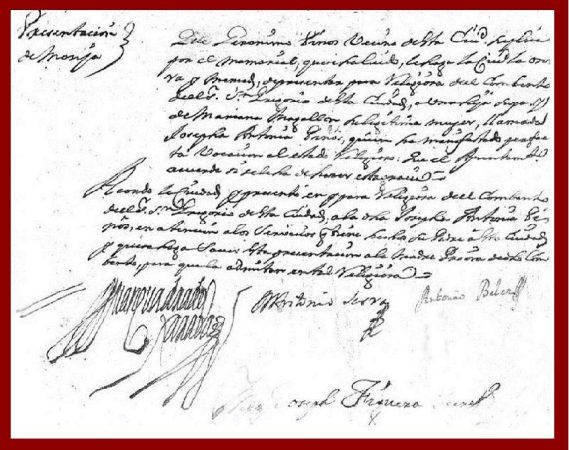 Presentación
de Monja
Que Geronimo Pinos Vecino de esta Ciud. suplica
por el memorial, que se ha leido, le haga la Ciud. la onr
ra y merced, de presentar para Religiosa del Combento
de Sr. Sn. Gregorio de esta Ciudad, a una hija suya y
de Mariana Magallon su legitima muger, llamada
Josepha Antonia Pinos, quien ha manifestado
ta Vocacion al estado Religioso: Que el Ayuntam.to
acuerde si se ha de hacer esta gracia
Acordo la Ciudad, q presente en y para Religiosa del Combento
de Sr. Sn. Gregorio de esta Ciudad, a la dha Josepha Antonia Pi
nos, en atencion a los Servicios q tiene hechos su Padre a esta Ciudad
y que se haga Saver esta presentacion a la Madre Priora de dho Com
bento, para que la admitan en tal Religiosa
Antonio Serra
Antonio
Joseph Figuera